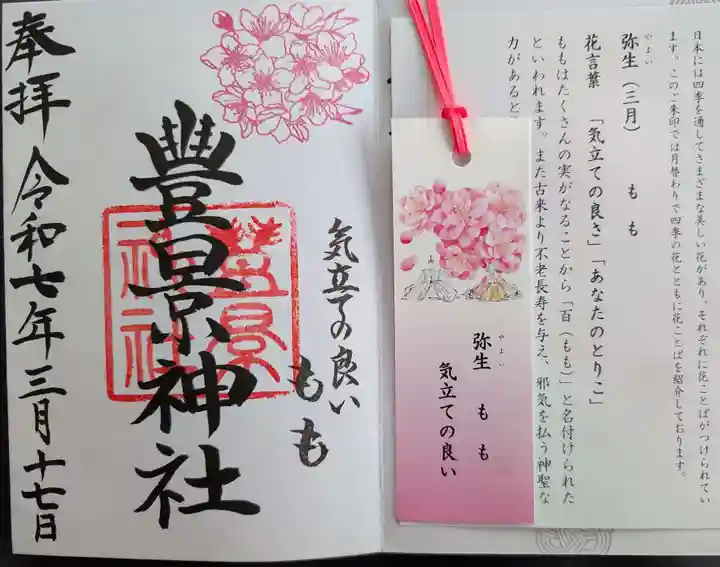 日本には四季を通してさまざまな美しい花があり、それぞれに花ことばがつけられてい
ます。このご朱印では月替わりで四季の花とともに花ことばを紹介しております。
やよい
弥生(三月) もも
花言葉 「気立ての良さ」「あなたのとりこ」
ももはたくさんの実がなることから「百(もも)」と名付けられた
といわれます。また古来より不老長寿を与え、邪気を払う神聖な
力があると
やよい
弥生 もも
気立ての良い
気立ての良い
もも
豐景神社
豐景
神社
奉拝 令和七年三月十七日